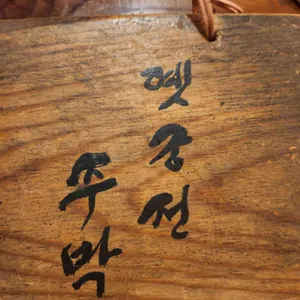 옛궁전
쭈박